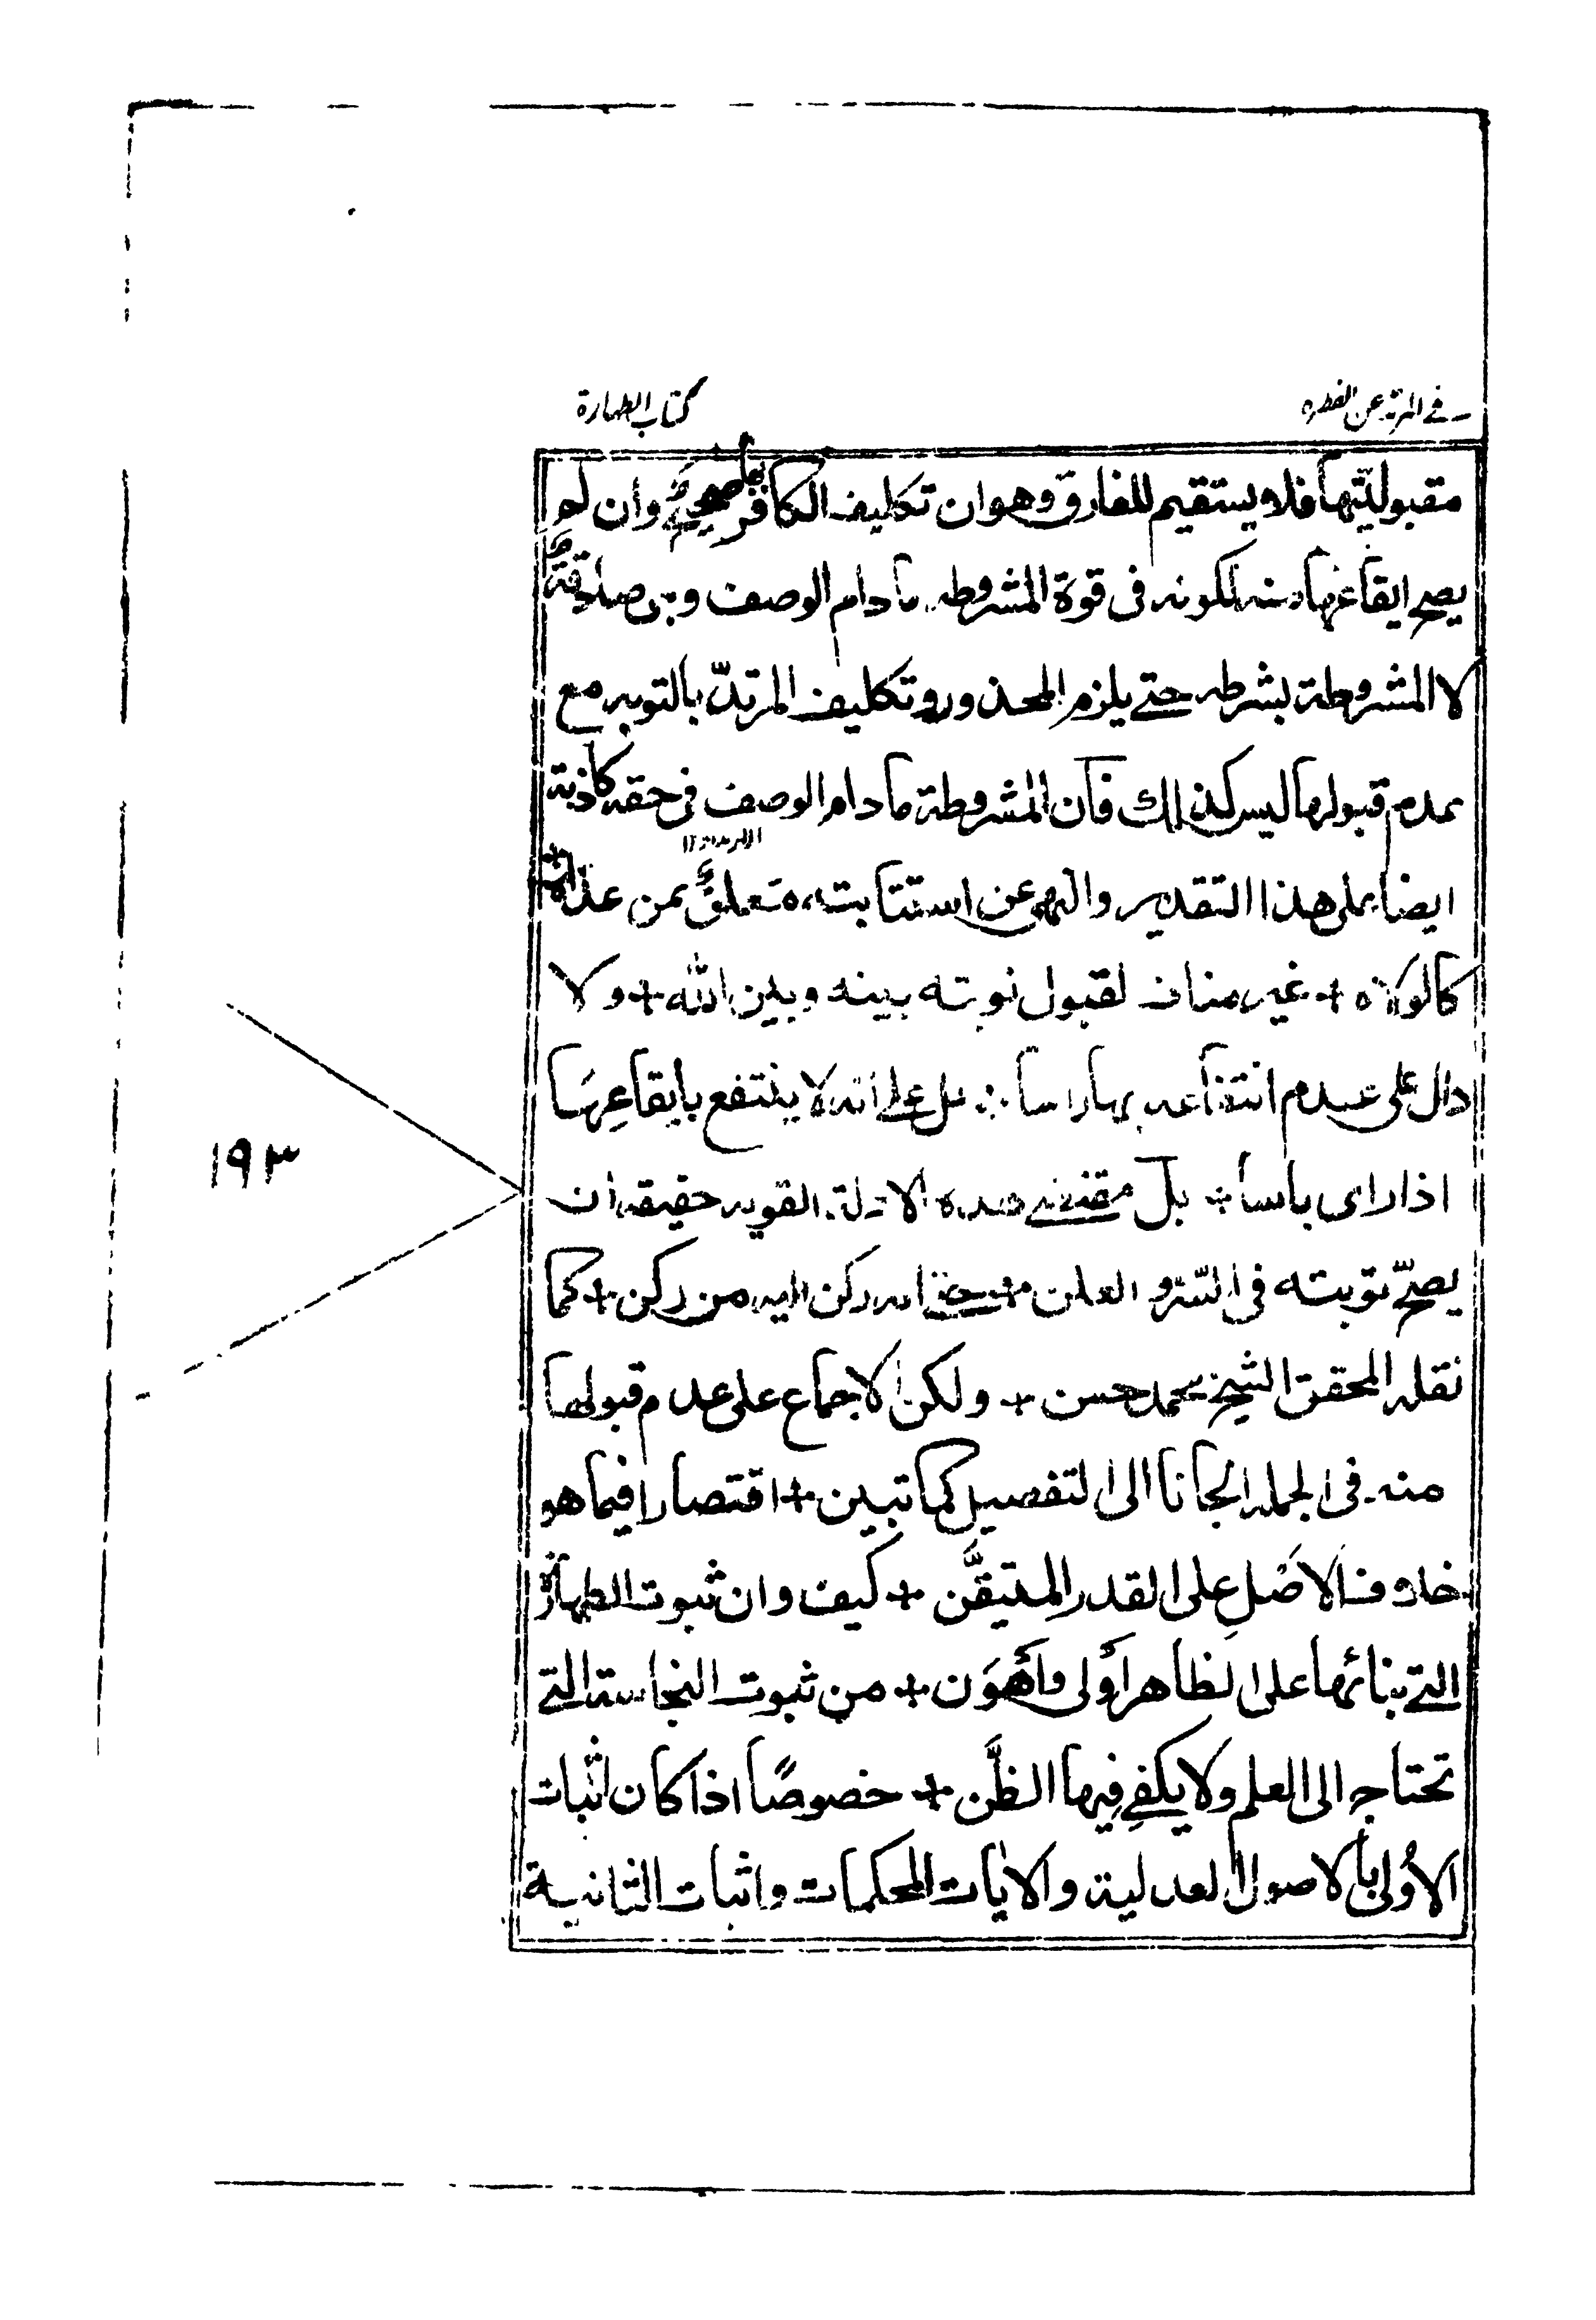 في المرتد عن الفطره
كتاب الطهارة
مقبوليّتها فلا يستقيم للفارق وهو ان تكليف الكافر بها صحيح وان لم
يصح ايقاعها منه لكونه فى قوة المشروطه مادام الوصف وهى صادقة
لا المشروطة بشرطه حتى يلزم المحذور وتكليف المرتدّ بالتوبه مع
عدم قبولها ليس كذلك فان المشروطة مادام الوصف فى حقه كاذبة
ايضا على هذا التقدير والنهى عن استتابته متعلق بمن عداه
كالولاة + غير مناف لقبول توبته بينه وبين الله + ولا
دال على عدم انتفاعه بها راسا بل على انه لا ينتفع بايقاعها
اذا راى باسا + بل مقتضى هذه الادلة القويه حقيقه ان
يصحّ توبته فى السّر و العلن + حتى انه ركن اليه من ركن + كما
نقله المحقق الشيخ محمد حسن + ولكن الاجماع على عدم قبولها
منه فى الجمله الجانا الى التفصيل كما تبين + اقتصارا فيما هو
خلاف الاصل على القدر المتيقّن + كيف وان ثبوت الطهارة
التى بنائها على الظاهر أولى وأهوَن + من ثبوت النجاسة التى
تحتاج الى العلم ولا يكفى فيها الظّن + خصوصًا اذا كان اثبات
الأولى بالاصول العدلية والايات المحكمات واثبات الثانية
١٩٣